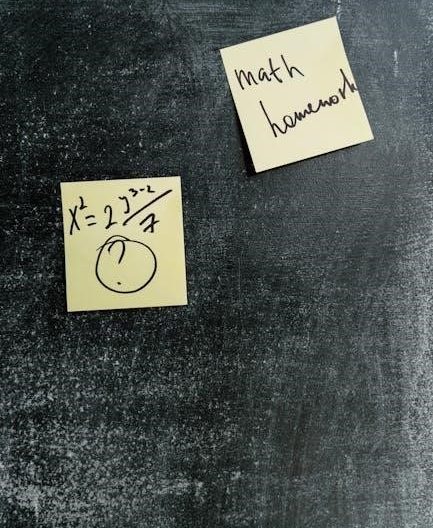 math
homework
x²= 2 y³⁻²/7
?